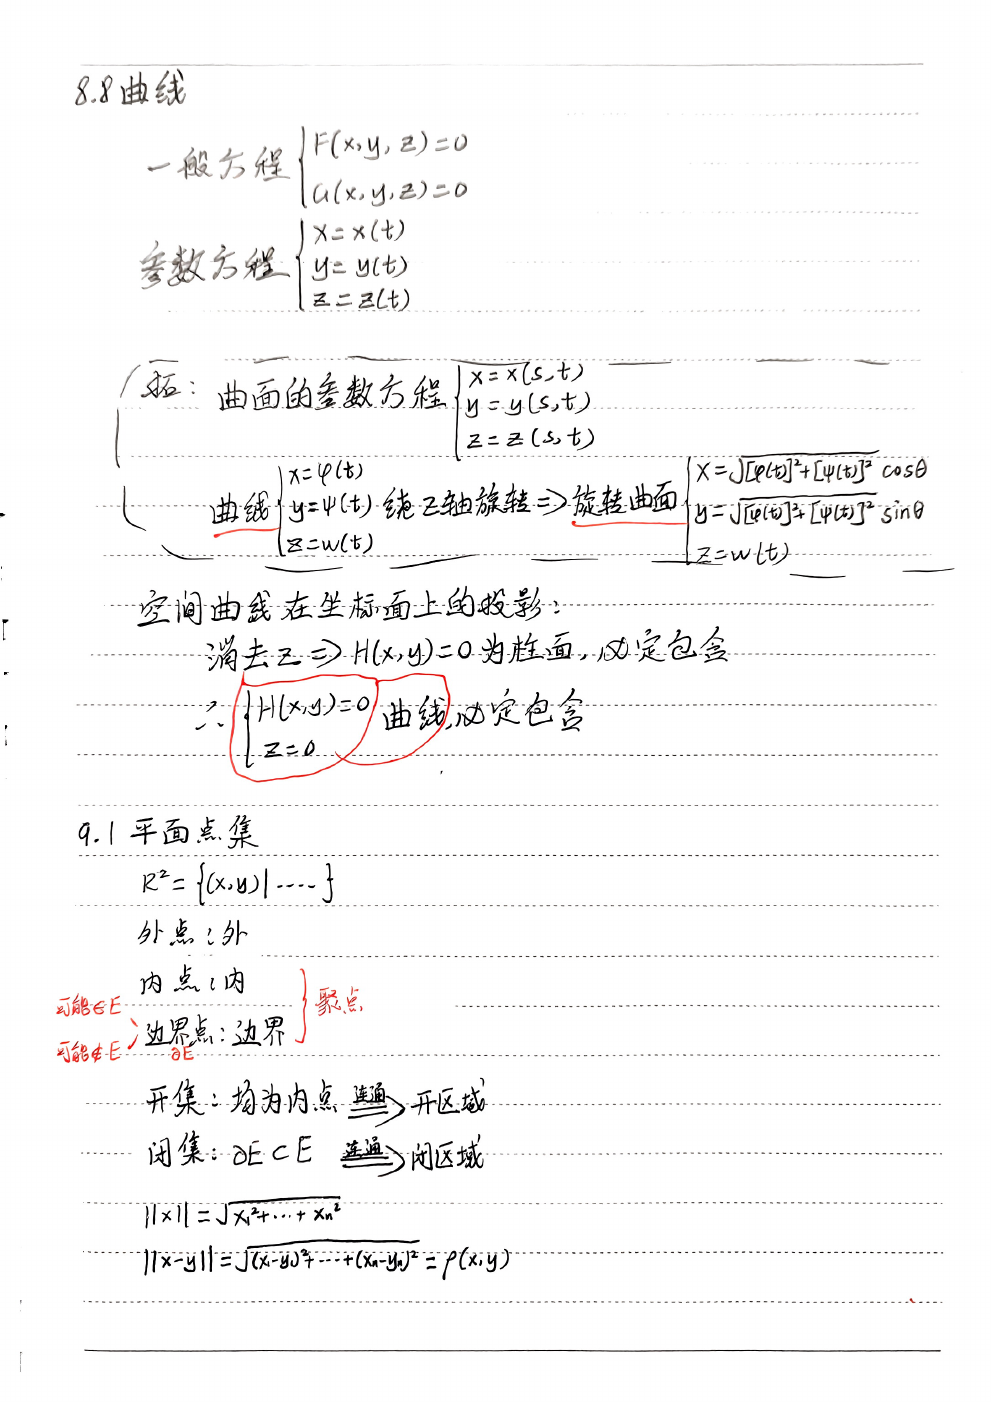 8.8 曲线
一般方程 { F(x,y,z)=0
G(x,y,z)=0
参数方程 { x=x(t)
y=y(t)
z=z(t)
拓: 曲面的参数方程 { x=x(s,t)
y=y(s,t)
z=z(s,t)
曲线 { x=φ(t)
y=ψ(t)
z=w(t)
绕z轴旋转⇒旋转曲面 { x=√([φ(t)]²+[ψ(t)]²) cosθ
y=√([φ(t)]²+[ψ(t)]²) sinθ
z=w(t)
空间曲线在坐标面上的投影:
消去z⇒H(x,y)=0为柱面,必定包含
∴ { H(x,y)=0
z=0
曲线,必定包含
9.1 平面点集
R²={(x,y)|·····}
外点:外
内点:内
聚点
可能∈E
边界点:边界
∂E
可能∉E
开集:均为内点 连通⇒ 开区域
闭集:∂E⊂E 连通⇒ 闭区域
||x||=√(x₁²+···+xₙ²)
||x-y||=√((x₁-y₁)²+···+(xₙ-yₙ)²)=ρ(x,y)